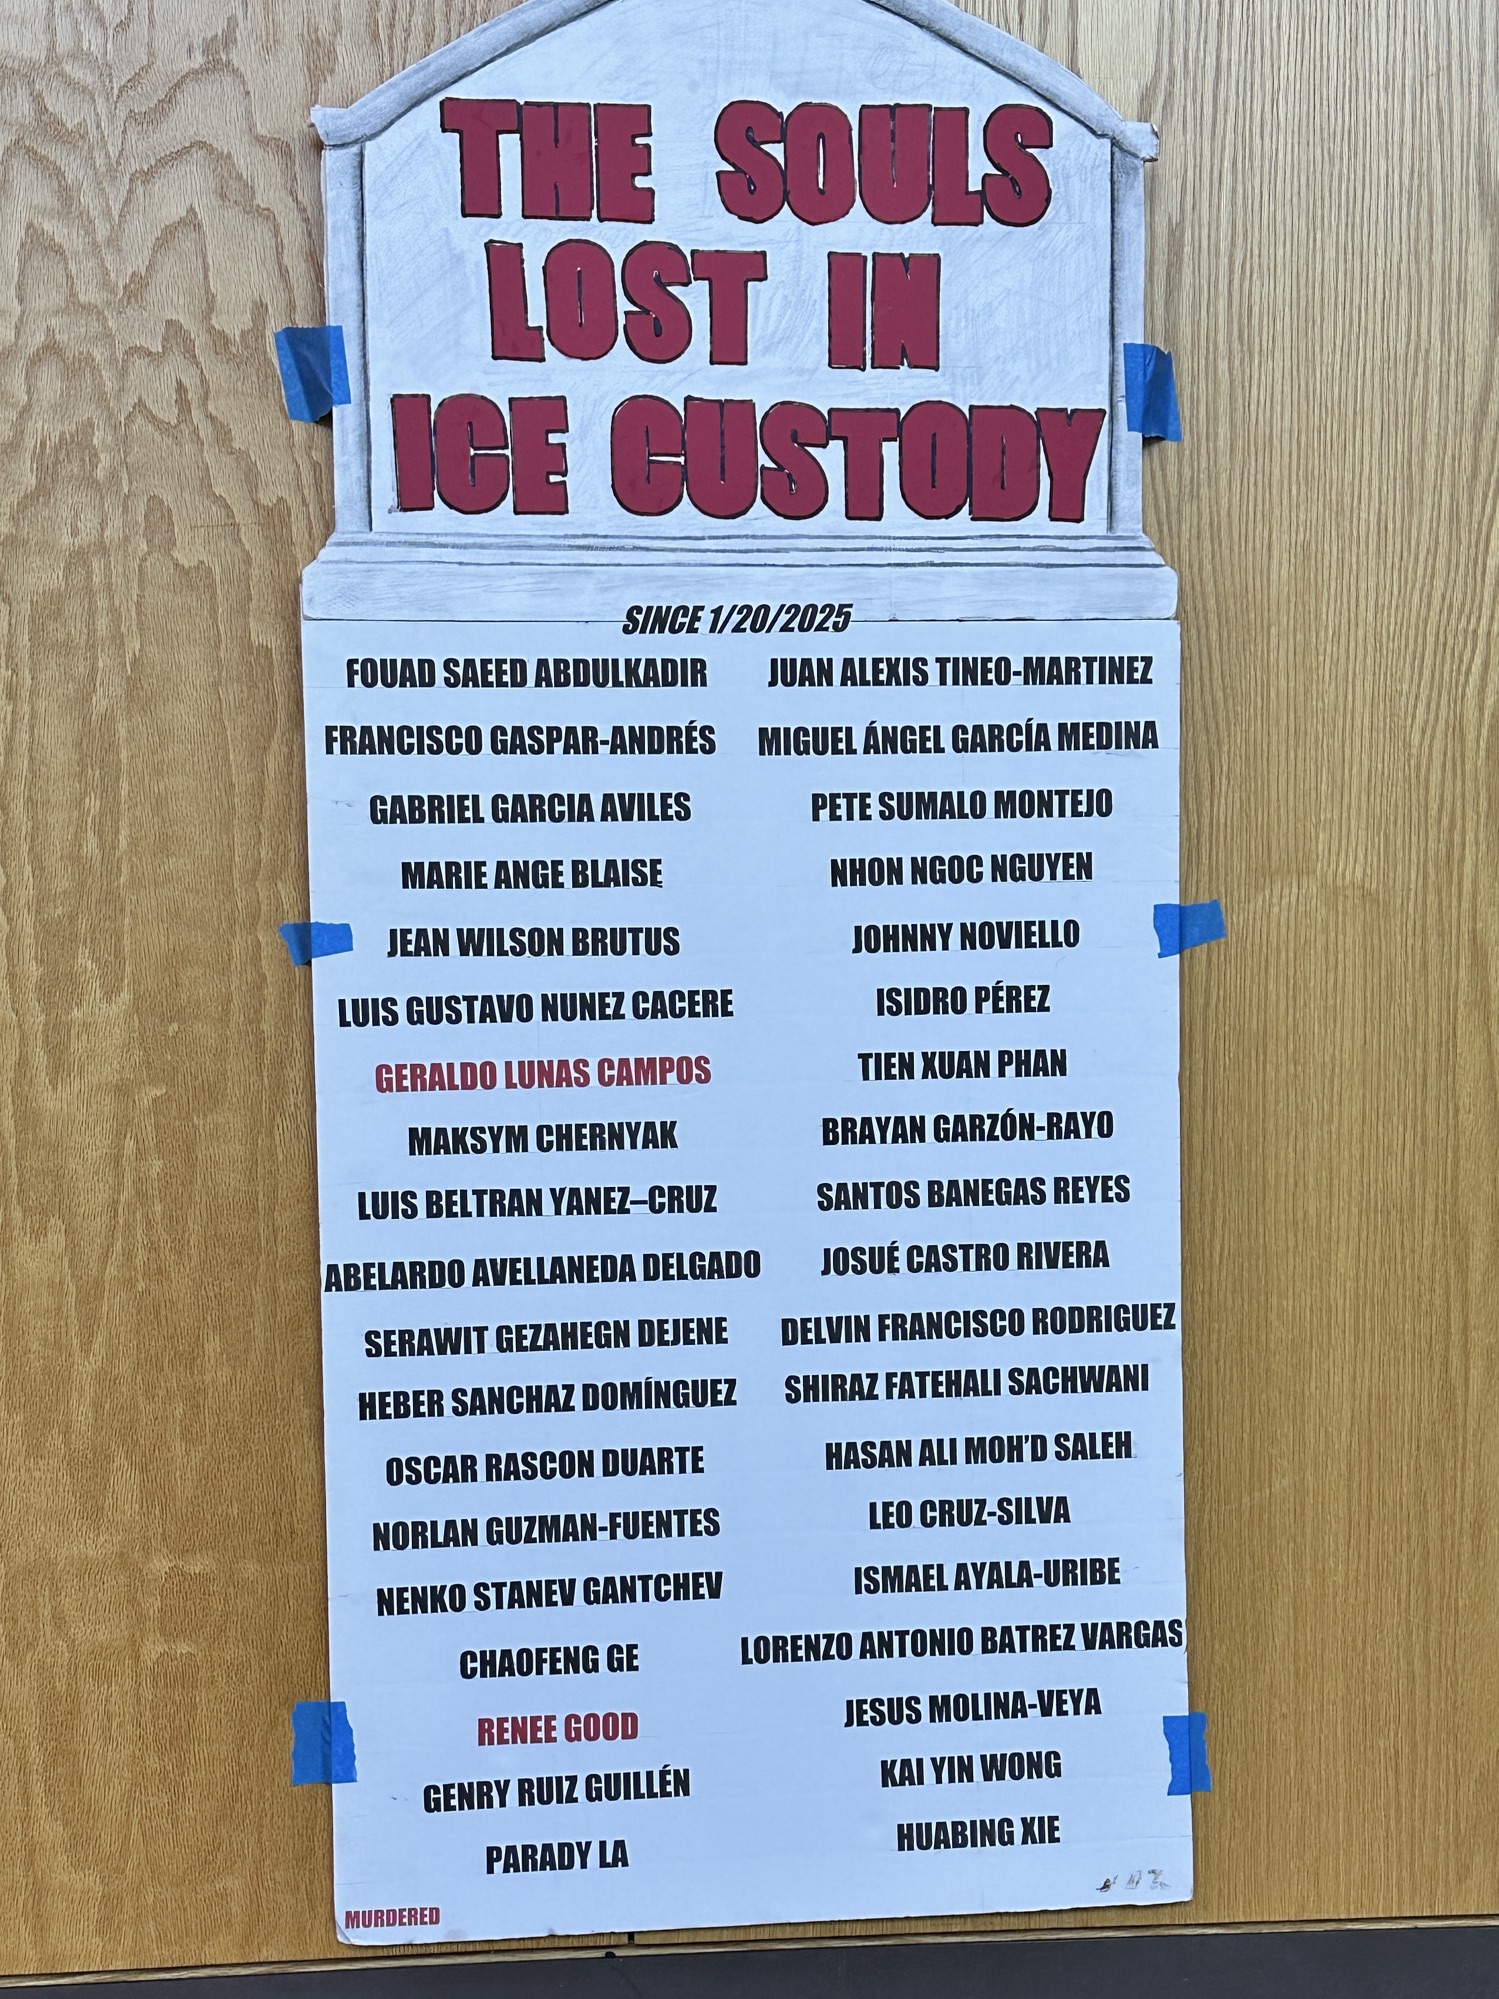 THE SOULS
LOST IN
ICE CUSTODY
SINCE 1/20/2025
FOUAD SAEED ABDULKADIR
FRANCISCO GASPAR-ANDRÉS
GABRIEL GARCIA AVILES
MARIE ANGE BLAISE
JEAN WILSON BRUTUS
LUIS GUSTAVO NUNEZ CACERE
GERALDO LUNAS CAMPOS
MAKSYM CHERNYAK
LUIS BELTRAN YANEZ–CRUZ
ABELARDO AVELLANEDA DELGADO
SERAWIT GEZAHEGN DEJENE
HEBER SANCHAZ DOMÍNGUEZ
OSCAR RASCON DUARTE
NORLAN GUZMAN-FUENTES
NENKO STANEV GANTCHEV
CHAOFENG GE
RENEE GOOD
GENRY RUIZ GUILLÉN
PARADY LA
MURDERED
JUAN ALEXIS TINEO-MARTINEZ
MIGUEL ÁNGEL GARCÍA MEDINA
PETE SUMALO MONTEJO
NHON NGOC NGUYEN
JOHNNY NOVIELLO
ISIDRO PÉREZ
TIEN XUAN PHAN
BRAYAN GARZÓN-RAYO
SANTOS BANEGAS REYES
JOSUÉ CASTRO RIVERA
DELVIN FRANCISCO RODRIGUEZ
SHIRAZ FATEHALI SACHWANI
HASAN ALI MOH’D SALEH
LEO CRUZ-SILVA
ISMAEL AYALA-URIBE
LORENZO ANTONIO BATREZ VARGAS
JESUS MOLINA-VEYA
KAI YIN WONG
HUABING XIE